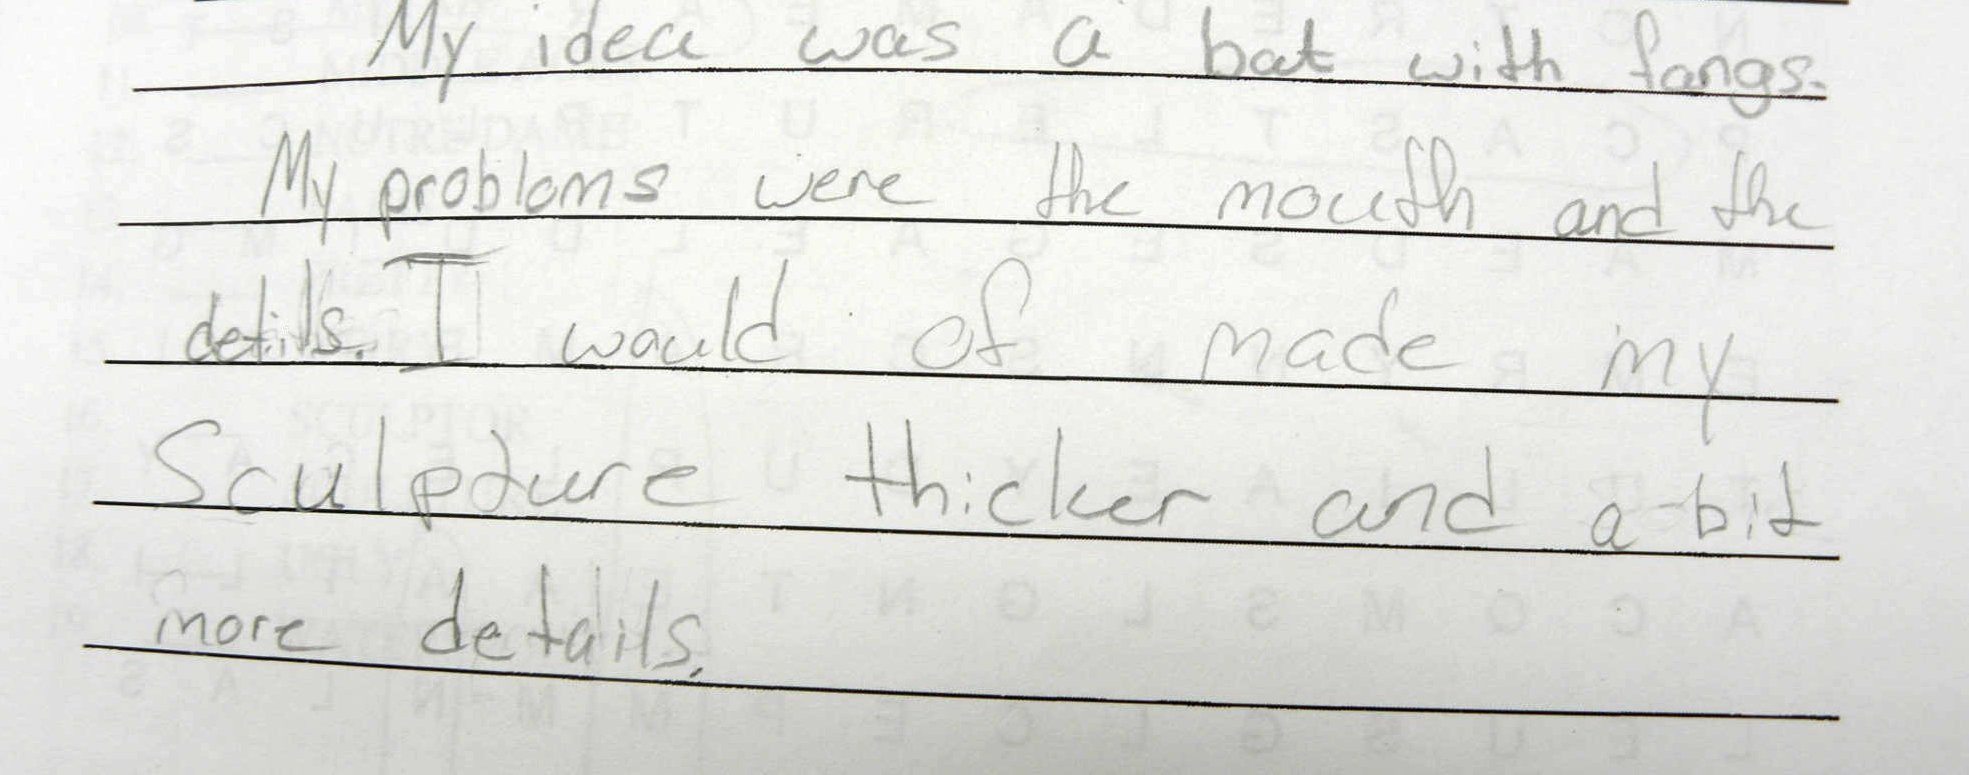 My idea was a bat with fangs.
My problems were the mouth and the
detills. I would of made my
Sculpture thicker and a bit
more details.